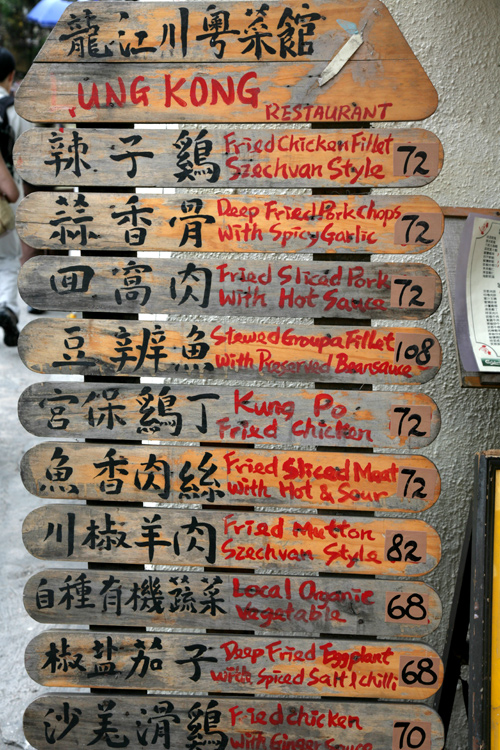 龍江川粵菜館
UNG KONG
RESTAURANT
辣子鷄
Fried Chicken Fillet
Szechvan Style
72
蒜香骨
Deep Fried Pork chops
With Spicy Garlic
72
回窩肉
Fried Sliced Pork
With Hot Sauce
72
豆瓣魚
Stewed Groupa Fillet
With Reserved Beansauce
108
宮保鷄丁
Kung Po
Fried Chicken
72
魚香肉絲
Fried Sliced Meat
with Hot & Sour
72
川椒羊肉
Fried Mutton
Szechvan Style
82
自種有機蔬菜
Local Organic
Vegetable
68
椒盐茄子
Deep Fried Eggplant
with Spiced Salt & chilli
68
沙羗滑鷄
Fried chicken
With Ginger Sauce
70